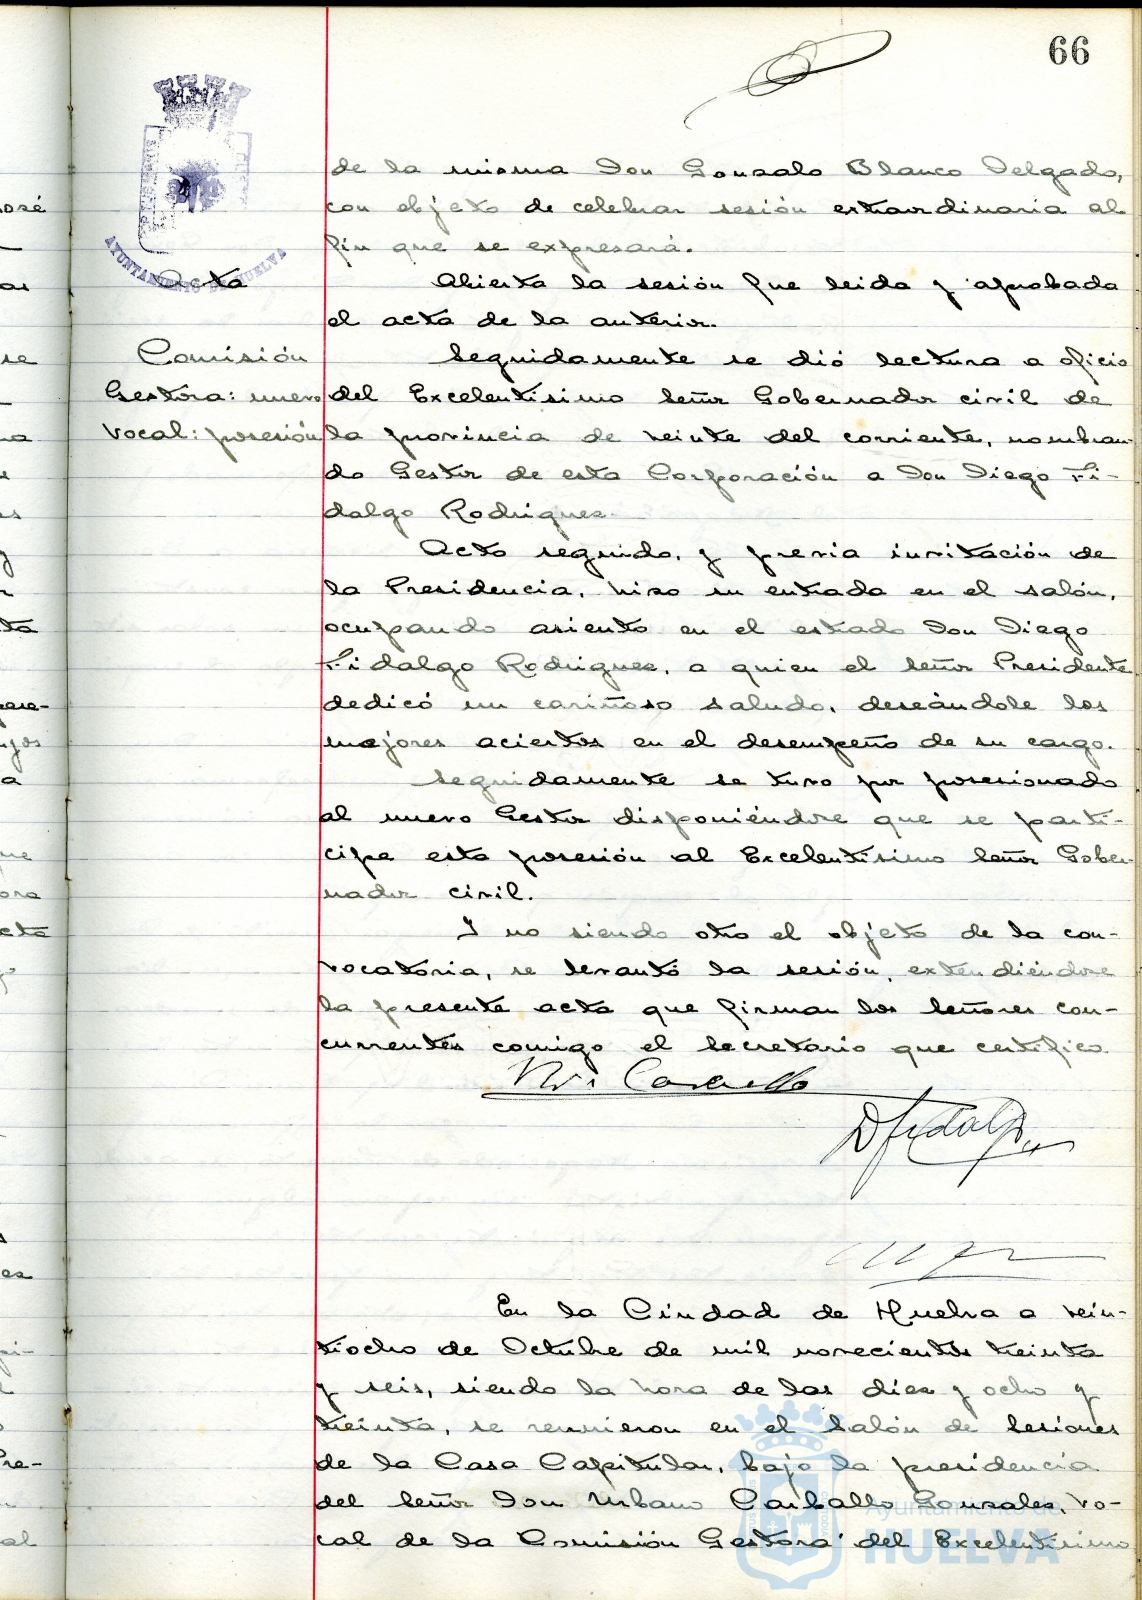 66
AYUNTAMIENTO DE HUELVA
de la misma Don Gonzalo Blanco Delgado,
con objeto de celebrar sesión extraordinaria al
fin que se expresará.
Acta
Abierta la sesión fue leida y aprobada
el acta de la anterior.
Comisión
Gestora: nuevo
Vocal: posesión
Seguidamente se dió lectura a oficio
del Excelentísimo Señor Gobernador civil de
la provincia de veinte del corriente, nombran-
do Gestor de esta Corporación a Don Diego Fi-
dalgo Rodriguez.
Acto seguido, y previa invitación de
la Presidencia, hizo su entrada en el salón,
ocupando asiento en el estrado Don Diego
Fidalgo Rodriguez, a quien el Señor Presidente
dedicó un cariñoso saludo, deseándole los
mejores aciertos en el desempeño de su cargo.
Seguidamente se tuvo por posesionado
al nuevo Gestor disponiéndose que se parti-
cipe esta posesión al Excelentísimo Señor Gober-
nador civil.
Y no siendo otro el objeto de la con-
vocatoria, se levantó la sesión, extendiéndose
la presente acta que firman los Señores con-
currentes conmigo el Secretario que certifico.
D Fidalgo
En la Ciudad de Huelva a vein-
tiocho de Octubre de mil novecientos treinta
y seis, siendo la hora de las diez y ocho y
treinta, se reunieron en el Salón de Sesiones
de la Casa Capitular, bajo la presidencia
del Señor Don Urbano Carballo Gonzales, Vo-
cal de la Comisión Gestora del Excelentísimo
Ayuntamiento de
HUELVA